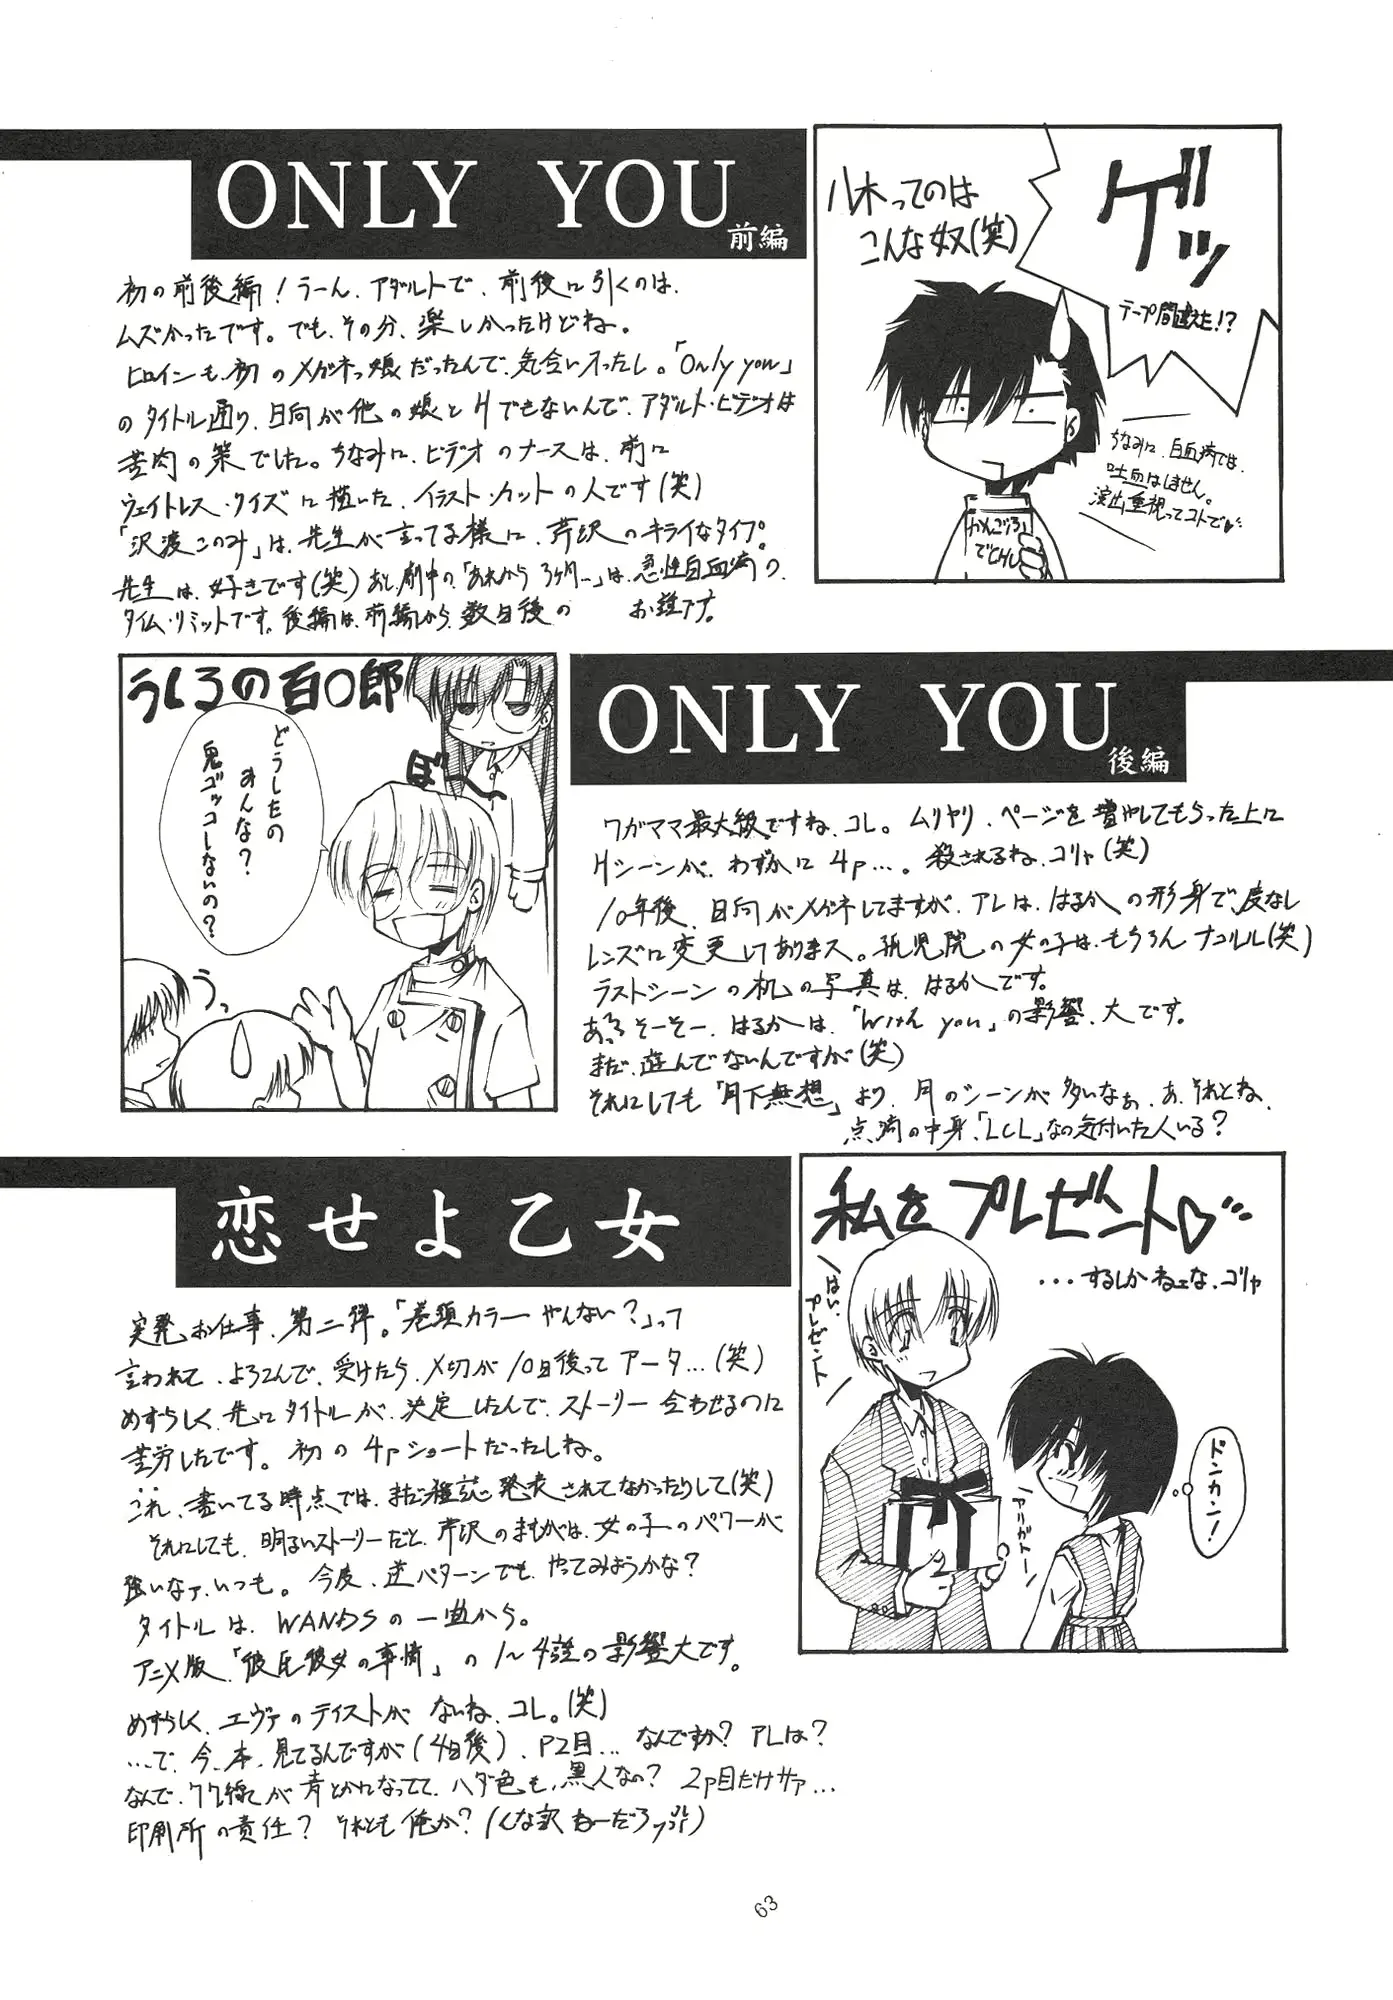 ONLY YOU
前編
初の前後編！うーん、アダルトで、前後に引くのは、
ムズかったです。でも、その分、楽しかったけどね。
ヒロインも、初のメガネっ娘だったんで、気合い入ったし。「Only you」
のタイトル通り、日向が他の娘とHでもないんで、アダルト・ビデオは
苦肉の策でした。ちなみに、ビデオのナースは、前に
ウェイトレス・クイズに描いた、イラスト・カットの人です(笑)
「沢渡このみ」は、先生が言ってる様に、芹沢のキライなタイプ。
先生は、好きです(笑)あと、劇中の「あれから3ヶ月…」は、急性白血病の、
タイム・リミットです。後編は、前編から、数日後の
お話です。
八木ってのは
こんな奴(笑)
ゲッ
テープ間違えた!?
ちなみに、白血病では、
吐血はしません。
演出重視ってコトで♥
かんごふろ
でCHU
うしろの百〇郎
どうしたの
みんな？
鬼ゴッコしないの？
ぼ〜〜
うっ
ONLY YOU
後編
ワガママ最大級ですね、コレ。ムリヤリ、ページを増やしてもらった上に
Hシーンが、わずかに4p…。殺されるね、コリャ(笑)
10年後、日向がメガネしてますが、アレは、はるかの形身で、度なし
レンズに変更してありまス。孤児院の女の子は、もちろんナコルル(笑)
ラストシーンの机の写真は、はるかです。
あっ、そーそー、はるかは、「With you」の影響、大です。
まだ、遊んでないんですが(笑)
それにしても「月下無想」より、月のシーンが多いなぁ、あ、それとね、
点滴の中身、「LCL」なの気付いた人いる？
恋せよ乙女
突発お仕事、第二弾。「巻頭カラーやんない？」って
言われて、よろこんで、受けたら、〆切が10日後ってアータ…(笑)
めずらしく、先にタイトルが、決定したんで、ストーリー合わせるのに
苦労したです。初の4pショートだったしね。
これ、書いてる時点では、まだ雑誌発表されてなかったりして(笑)
それにしても、明るいストーリーだと、芹沢のまんがは、女の子のパワーが
強いなァ、いつも。今度、逆パターンでも、やってみようかな？
タイトルは、WANDSの一曲から。
アニメ版、「彼氏彼女の事情」の1〜4話の影響大です。
めずらしく、エヴァのテイストがないね、コレ。(笑)
…で、今、本、見てるんですが(4日後)、P2目…なんですか？アレは？
なんで、フチ線が青とかになってて、ハダ色も、黒人なの？2p目だけサァ…
印刷所の責任？それとも俺か？(んな訳ねーだろっ)
私をプレゼント♡
…するしかねェな、コリャ
はい、
プレゼント
アリガトー
ドンカン！
63